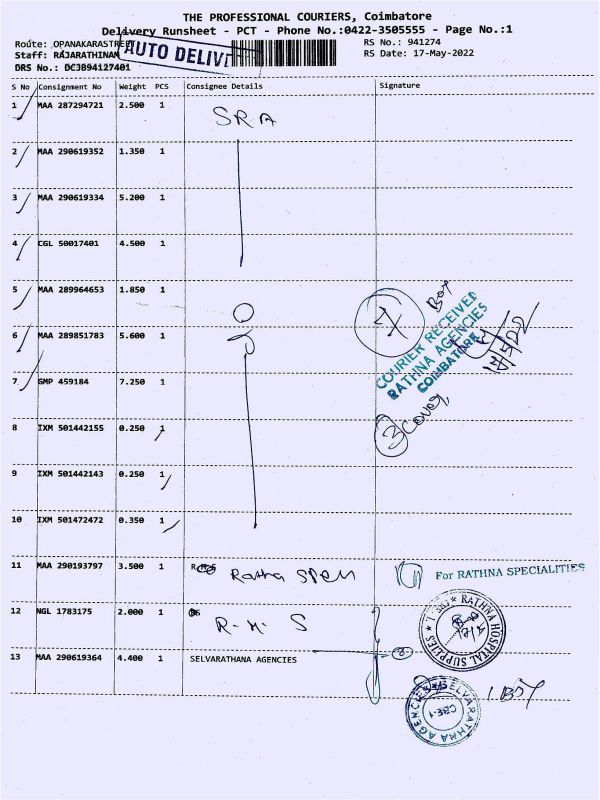 THE PROFESSIONAL COURIERS, Coimbatore
Delivery Runsheet - PCT - Phone No.:0422-3505555 - Page No.:1
Route: OPANAKARASTREET
RS No.: 941274
Staff: RAJARATHINAM
RS Date: 17-May-2022
DRS No.: DCJB94127401
AUTO DELIVE
S No Consignment No Weight PCS Consignee Details Signature
1 MAA 287294721 2.500 1 SRA
2 MAA 290619352 1.350 1
3 MAA 290619334 5.200 1
4 CGL 50017401 4.500 1
5 MAA 289964653 1.850 1
Box
COURIER RECEIVED
RATHNA AGENCIES
COIMBATORE
6 MAA 289851783 5.600 1
7 GMP 459184 7.250 1
3 Cover
8 IXM 501442155 0.250 1
9 IXM 501442143 0.250 1
10 IXM 501472472 0.350 1
11 MAA 290193797 3.500 1 Ratna
For RATHNA SPECIALITIES
12 NGL 1783175 2.000 1 R.H.S
RATHNA HOSPITAL SUPPLIES
13 MAA 290619364 4.400 1 SELVARATHANA AGENCIES
SELVARATHNA AGENCIES
CBE-1
1 Box